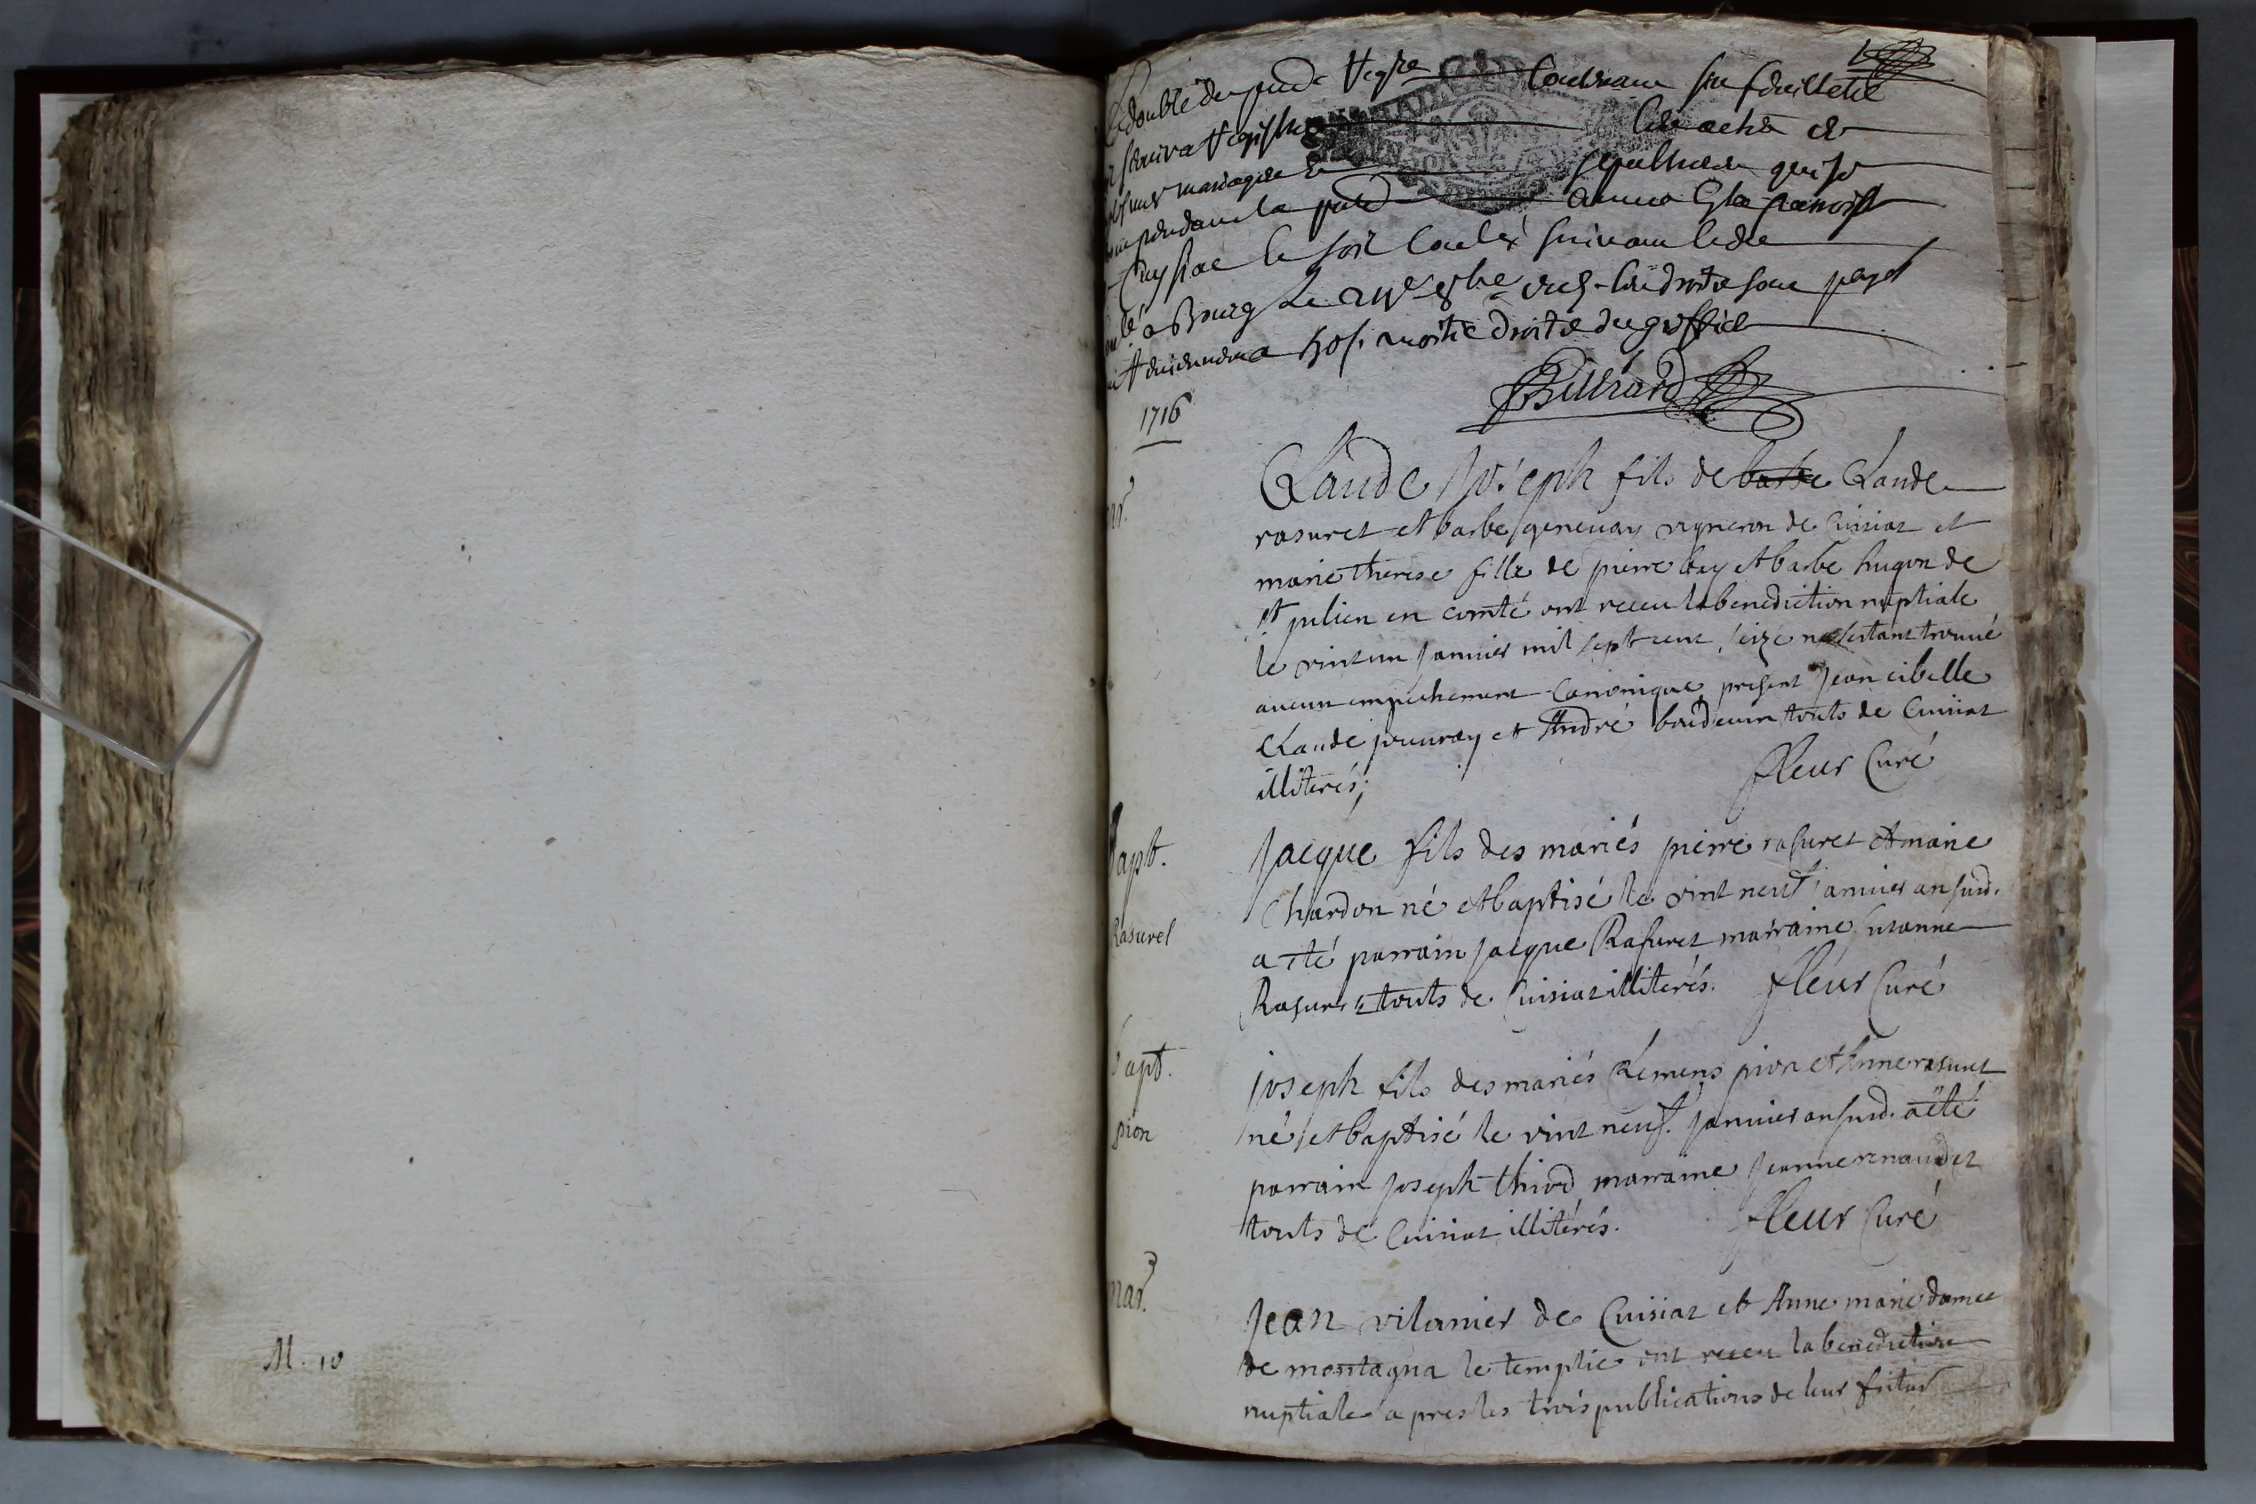 M. 10
Le double du regre Contenant six feuillets
servira registre les actes de
mariages et sepultures qui se
pendant la annee
Cuysiat le soit suivant led
a Bourg le 8bre droits sont payé
50 s. moitié droits du greffier
Billiard
1716
Claude Joseph fils de barbe Claude
rasuret et barbe genevay vigneron de Cuisiat et
marie therese fille de pierre bay et barbe hugon de
st julien en comté ont receu la benediction nuptiale
le vint un janvier mil sept cent seize ne sestant trouvé
aucun empechement canonique present jean cibelle
Claude et André touts de Cuisiat
illiterés; fleur Curé
bapt.
Rasuret
Jacque fils des mariés pierre rasuret et marie
Chardon né et baptisé le vint neuf janvier an susd.
a eté parrain jacque Rasuret marraine susanne
Rasuret touts de Cuisiat illiterés. fleur Curé
bapt.
pion
joseph fils des mariés Clemens pion et Anne rasuret
né et baptisé le vint neuf. janvier an susd. a été
parrain joseph thivod marraine jeanne renaudet
touts de Cuisiat illitérés. fleur Curé
mar.
Jean vilanier de Cuisiat et Anne marie
de montagna le templie ont receu la benediction
nuptiale apres les trois publications de leur futur